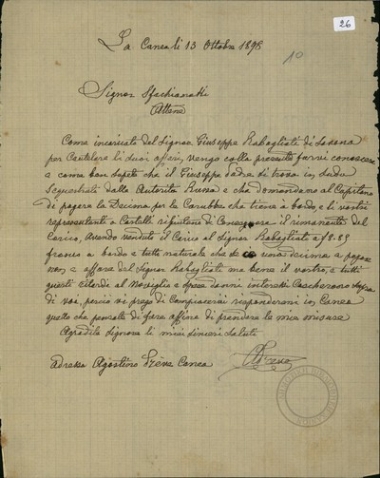 26
La Canea li 13 Ottobre 1898
10
Signor Sfachianachi
Attene
Come incaricato del Signor Giuseppe Rabagliati di Savona
per Cautelare li Suoi affari, vengo colla presente farvi conoscere
e come ben sapete che il Giuseppe padre si trova in Suda
Sequestrati dalla Autorita Russa e che domandano al Capitano
di pagare la Decima per la Carubba che tiene a bordo, e li vostri
representanti a Castelli rifiutano di Consegnare il rimanente del
Carico, Avendo venduto il Carico al Signor Rabagliati a f 8.85
franco a bordo e tutto naturale che una decima a pagare
non e affare del Signor Rabagliati ma bene il vostro, e tutti
questi ritardi al Noviglio e Spese danni interessi Cascherano Sopra
di voi, percio vi prego di Compiacervi respondermi in Canea
quello che pensate di fare affine di prendere le mie misure
Agradite Signore li miei Sinceri Saluti
Adressa Agostino Canea